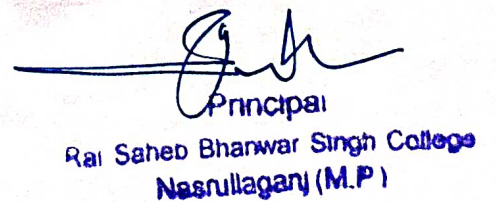 Principal
Rai Saheb Bhanwar Singh College
Nasrullaganj (M.P)